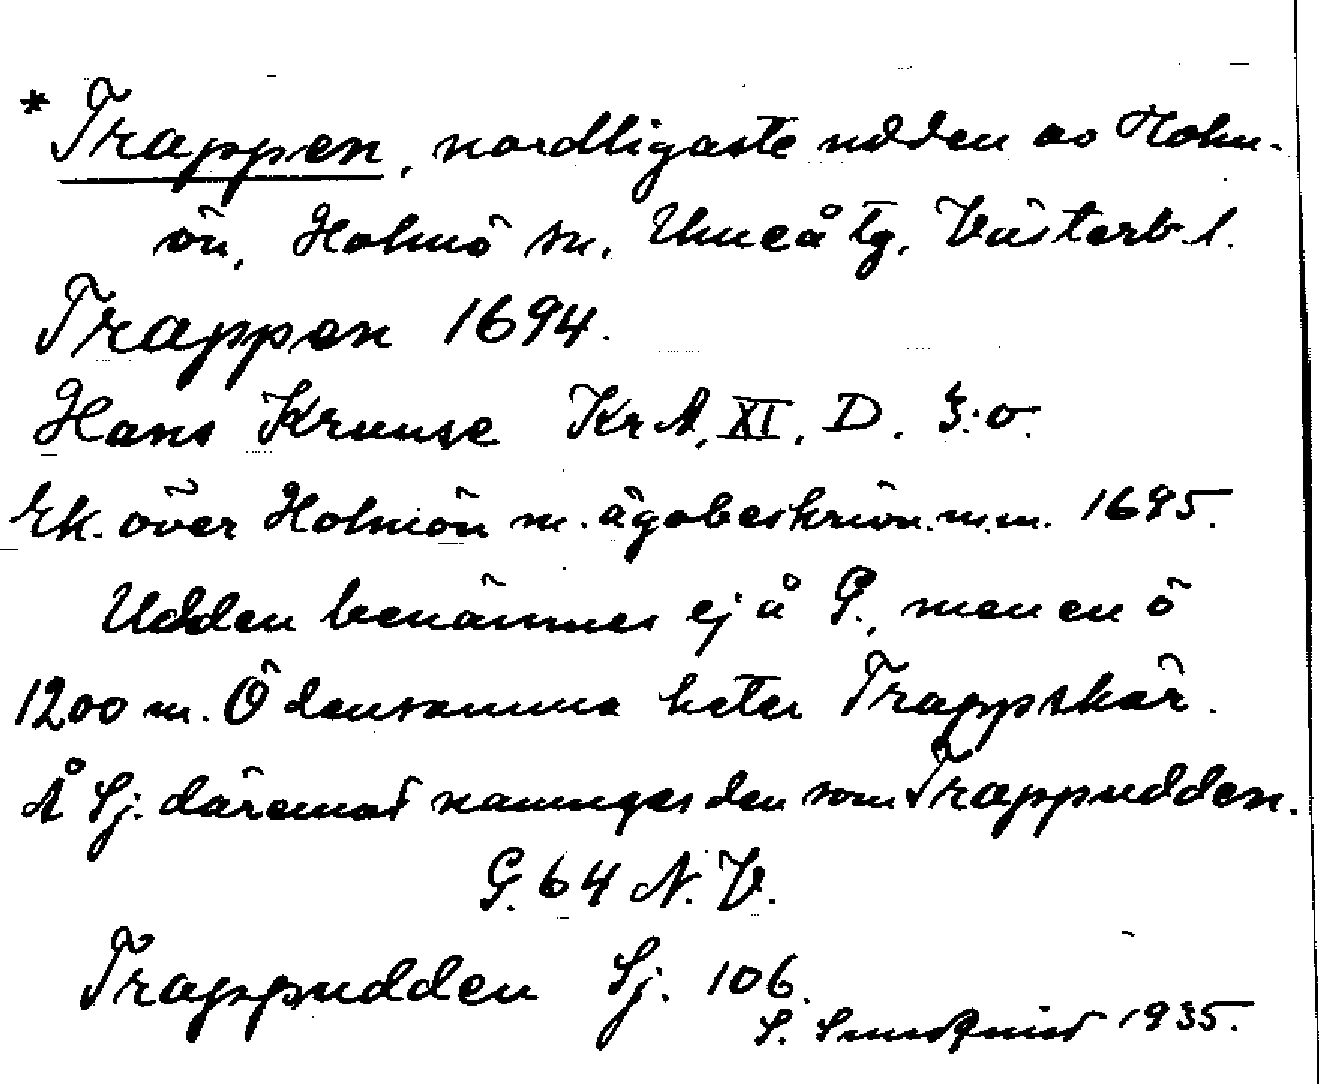 * Trappen, nordligaste udden av Holm-
ön, Holmö sn, Umeå tg, Västerb. l.
Trappen 1694.
Hans Kruuse KrA, XI, D. 3:o.
Ek. över Holmön m. ägobeskrivn. m.m. 1695.
Udden benämnes ej å G., men en ö
1200 m. Ö densamma heter Trappskär.
Å Sj. däremot namnges den som Trappudden.
G. 64 N.V.
Trappudden Sj. 106.
S. Sundqvist 1935.